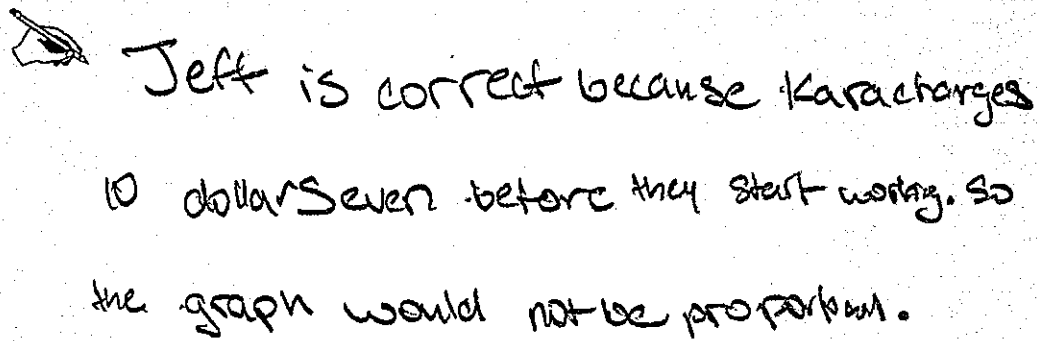 Jeff is correct because Kara charges
10 dollars even before they start working. So
the graph would not be proportional.